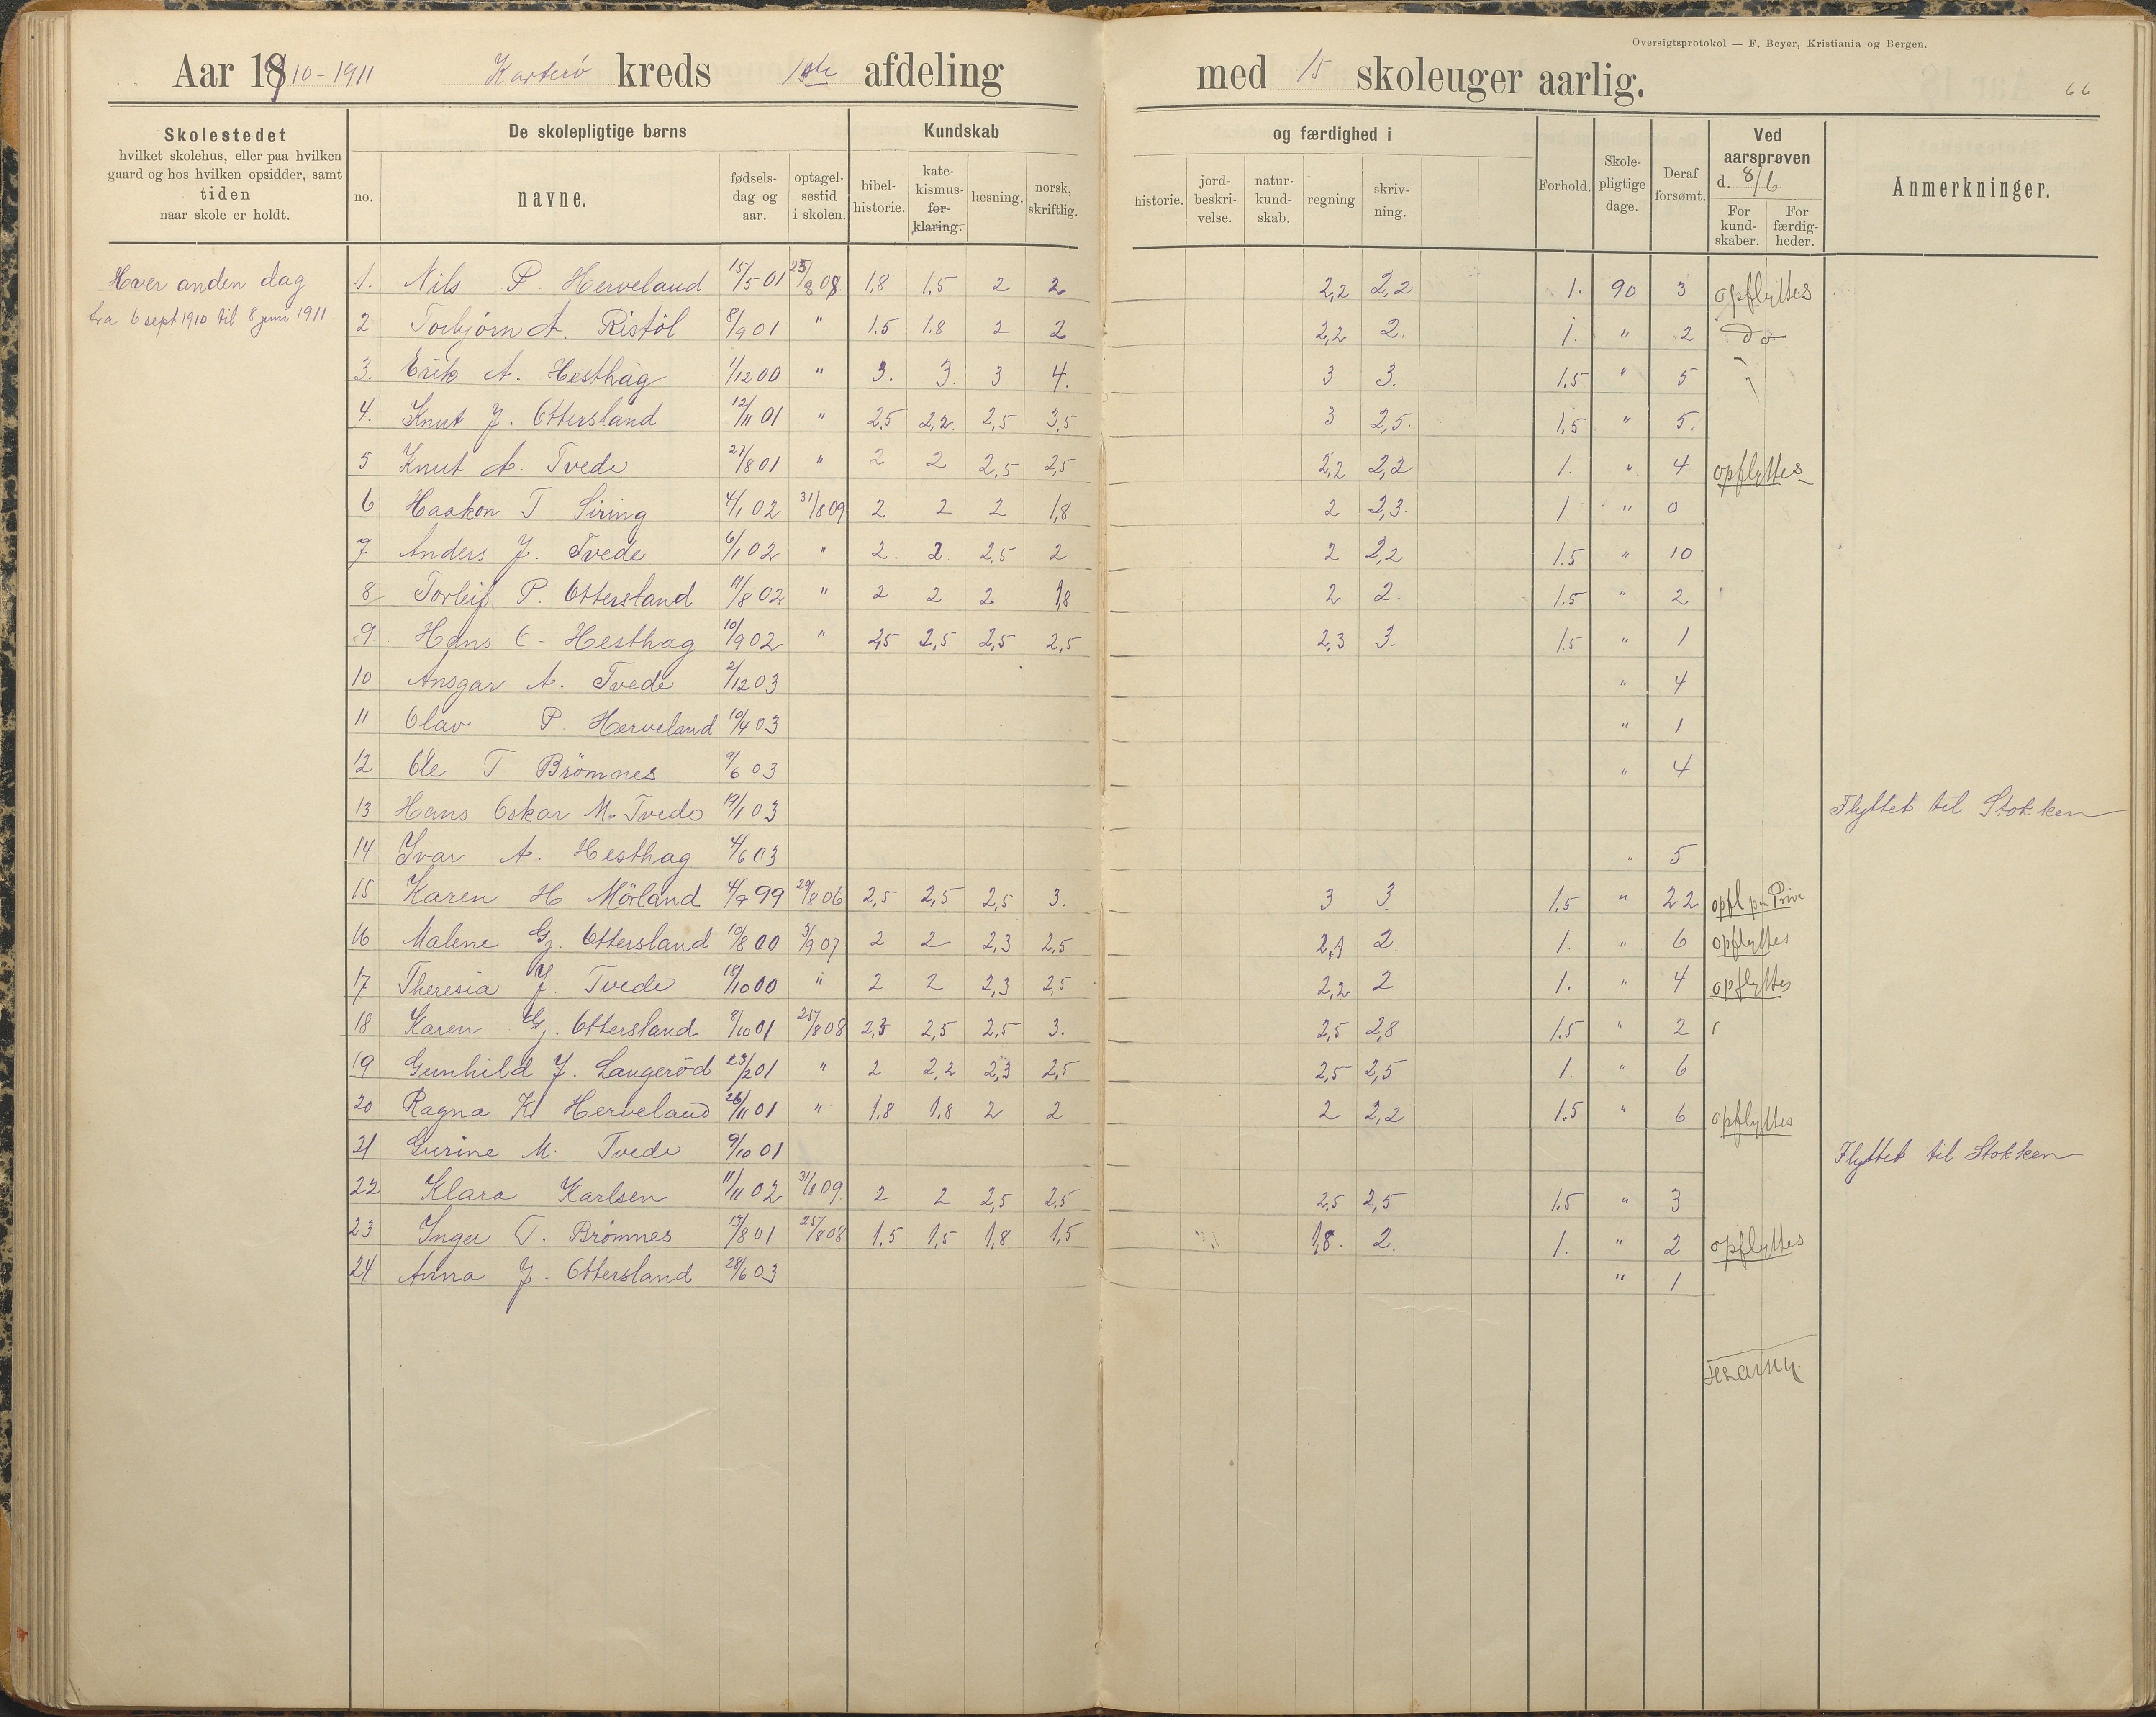 Oversigtsprotokol — F. Beyer, Kristiania og Bergen.
Aar 1910-1911 kreds 1ste afdeling med 15 skoleuger aarlig.
66
Skolestedet
hvilket skolehus, eller paa hvilken
gaard og hos hvilken opsidder, samt
tiden
naar skole er holdt.
De skolepligtige børns
no.
navne.
fødsels-
dag og
aar.
optagel-
sestid
i skolen.
Kundskab
bibel-
historie.
kate-
kismus-
for-
klaring.
læsning.
norsk,
skriftlig.
og færdighed i
historie.
jord-
beskri-
velse.
natur-
kund-
skab.
regning
skriv-
ning.
Forhold.
Skole-
pligtige
dage.
Deraf
forsømt.
Ved
aarsprøven
d. 8/6
For
kund-
skaber.
For
færdig-
heder.
Anmerkninger.
Hver anden dag
fra 6 sept 1910 til 8 juni 1911.
1. Nils P. Herveland 15/5 01 25/8 08. 1,8 1,5 2 2 2,2 2,2 1. 90 3 opflyttes
2 Torbjørn A. Ristöl 8/9 01 " 1.5 1.8 2 2 2,2 2. 1. " 2 do
3. Erik A. Hesthag 1/12 00 " 3. 3. 3 4. 3 3. 1.5 " 5
4. Knut J. Ottersland 12/11 01 " 2,5 2,2. 2,5 3,5 3 2,5. 1,5 " 5.
5 Knut A. Tvede 27/8 01 " 2 2 2,5 2,5 2,2 2,2 1. " 4 opflyttes
6 Haakon T Siring 4/1 02 31/8 09 2 2 2 1,8 2 2,3. 1 " 0
7 Anders J. Tvede 6/1 02 " 2. 2. 2,5 2 2 2,2 1.5 " 10
8 Torleif P. Ottersland 11/8 02 " 2 2 2 1,8 2 2. 1.5 " 2
9 Hans C - Hesthag 10/9 02 " 2,5 2,5 2,5 2,5 2,3 3. 1.5 " 1
10 Ansgar A. Tvede 2/12 03 " 4
11 Olav P. Herveland 10/4 03 " 1
12 Ole T Brömnes 9/6 03 " 4
13 Hans Oskar M. Tvede 19/1 03 Flyttet til Stokken
14 Ivar A. Hesthag 4/6 03 " 5
15 Karen H Mörland 4/9 99 29/8 06 2,5 2,5 2,5 3. 3 3. 1.5 " 22 opfl
16 Malene Gj. Ottersland 10/8 00 3/9 07 2 2 2,3 2,5 2,1 2. 1. " 6 opflyttes
17 Theresia J. Tvede 18/10 00 " 2 2 2,3 2,5 2,2 2 1. " 4 opflyttes
18 Karen Gj. Ottersland 8/10 01 25/8 08 2,3 2,5 2,5 3. 2,5 2,8 1.5 " 2
19 Gunhild J. Langeröd 23/2 01 " 2 2,2 2,3 2,5 2,5 2,5 1. " 6
20 Ragna K. Herveland 26/11 01 " 1.8 1.8 2 2 2 2,2 1.5 " 6 opflyttes
21 Gurine M. Tvede 9/10 01 Flyttet til Stokken
22 Klara Karlsen 11/11 02 31/8 09. 2 2 2,5 2,5 2,5 2,5 1.5 " 3
23 Inger T. Brömnes 13/8 01 25/8 08 1.5 1,5 1,8 1,5 1,8. 2. 1. " 2 opflyttes
24 Anna J. Ottersland 28/6 03 " 1